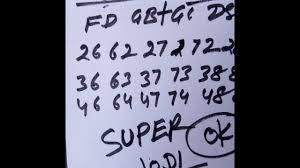 FD GB+Gi DS
26 62 27 2 72 2
36 63 37 73 38 8
46 64 47 74 48
SUPER OK
JODI